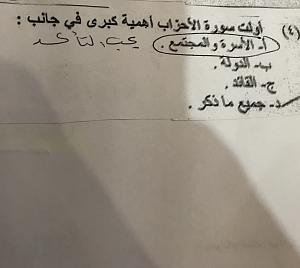 (٤) أولت سورة الأحزاب أهمية كبرى في جانب :
أ- الأسرة والمجتمع . يجب التأكد
ب- الدولة .
ج- القائد .
د- جميع ما ذكر .